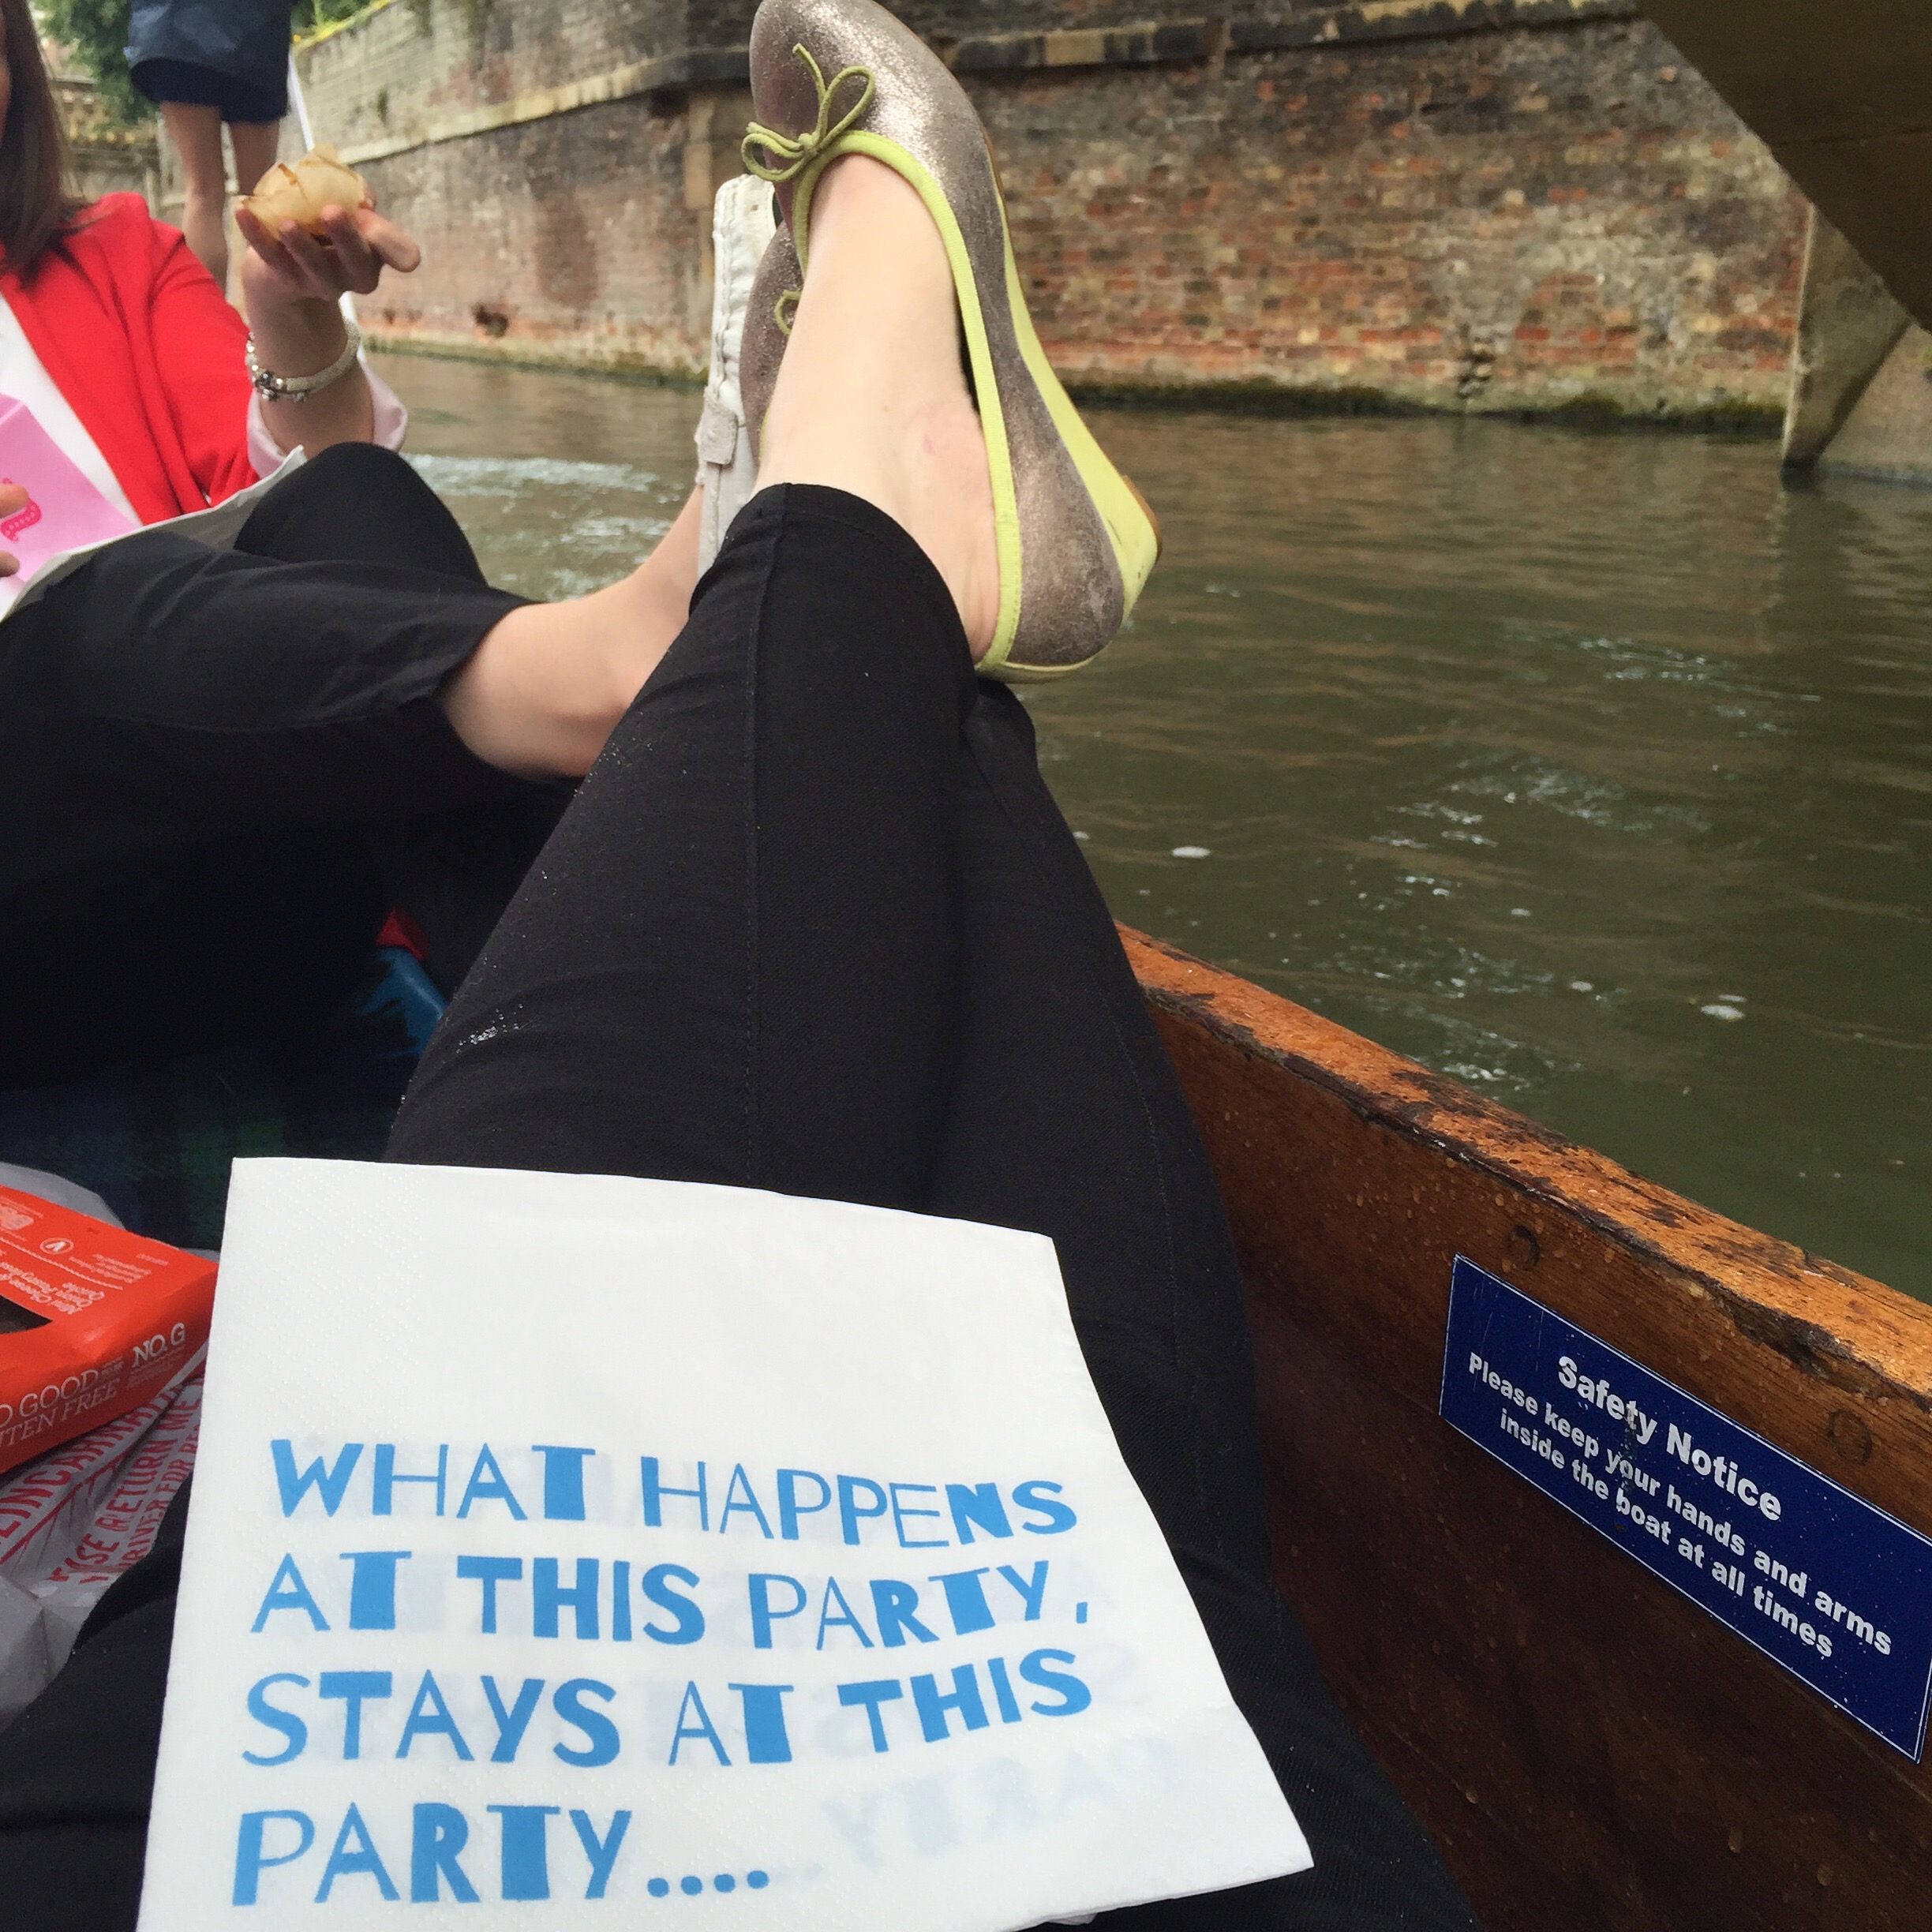 WHAT HAPPENS
AT THIS PARTY,
STAYS AT THIS
PARTY....
Safety Notice
Please keep your hands and arms
inside the boat at all times
Mini Cheese &
Onion
Quiche
V
GOOD
FREE
NO.G